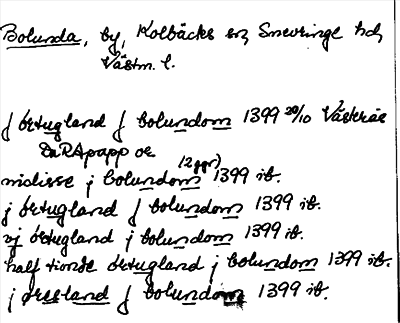 Bolunda, by, Kolbäcks sn Snevringe hd
Västm. l.
j örtugland j bolundom 1399 20/10 Västerås
DaRApapp or
midisse j bolundom (2 ggr) 1399 ib.
j örtugland j bolundom 1399 ib.
vj örtugland j bolundom 1399 ib.
half tionde örtugland j bolundom 1399 ib.
j øresland j bolundom 1399 ib.